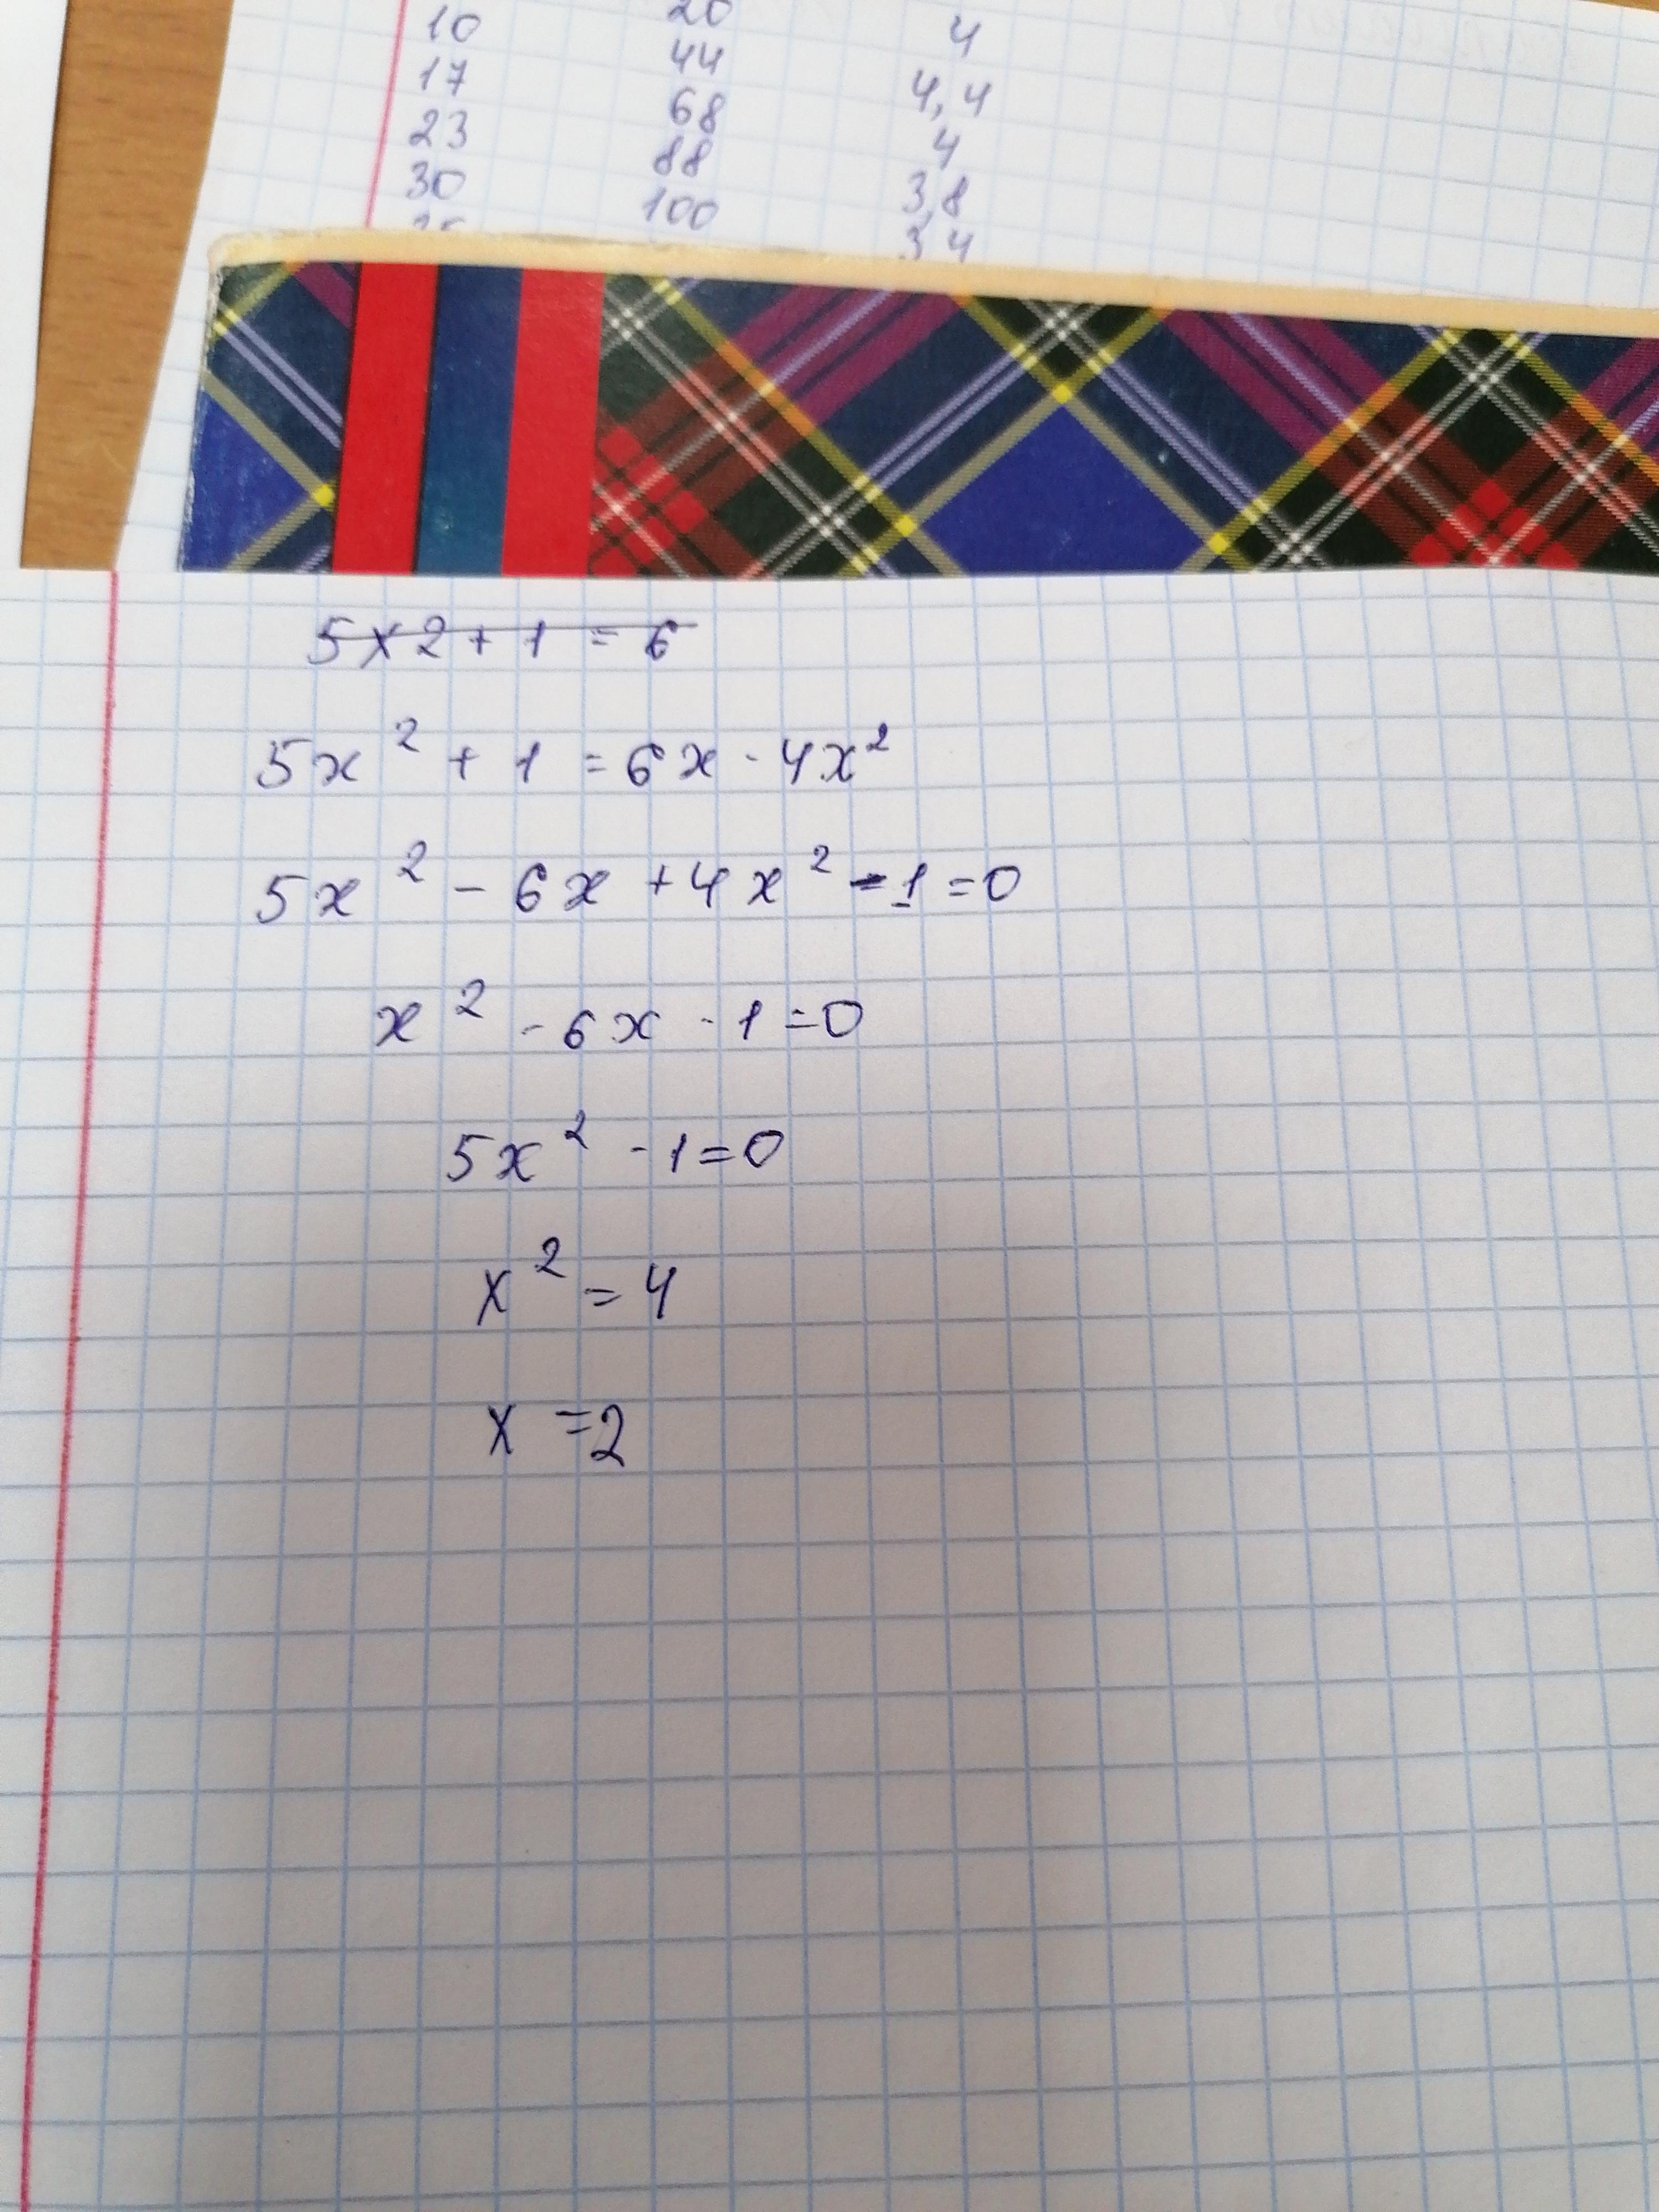 10 20 4
17 44 4,4
23 68 4
30 88 3,8
100 3,4
5x2+1=6
5x²+1=6x-4x²
5x²-6x+4x²-1=0
x²-6x-1=0
5x²-1=0
x²=4
x=2